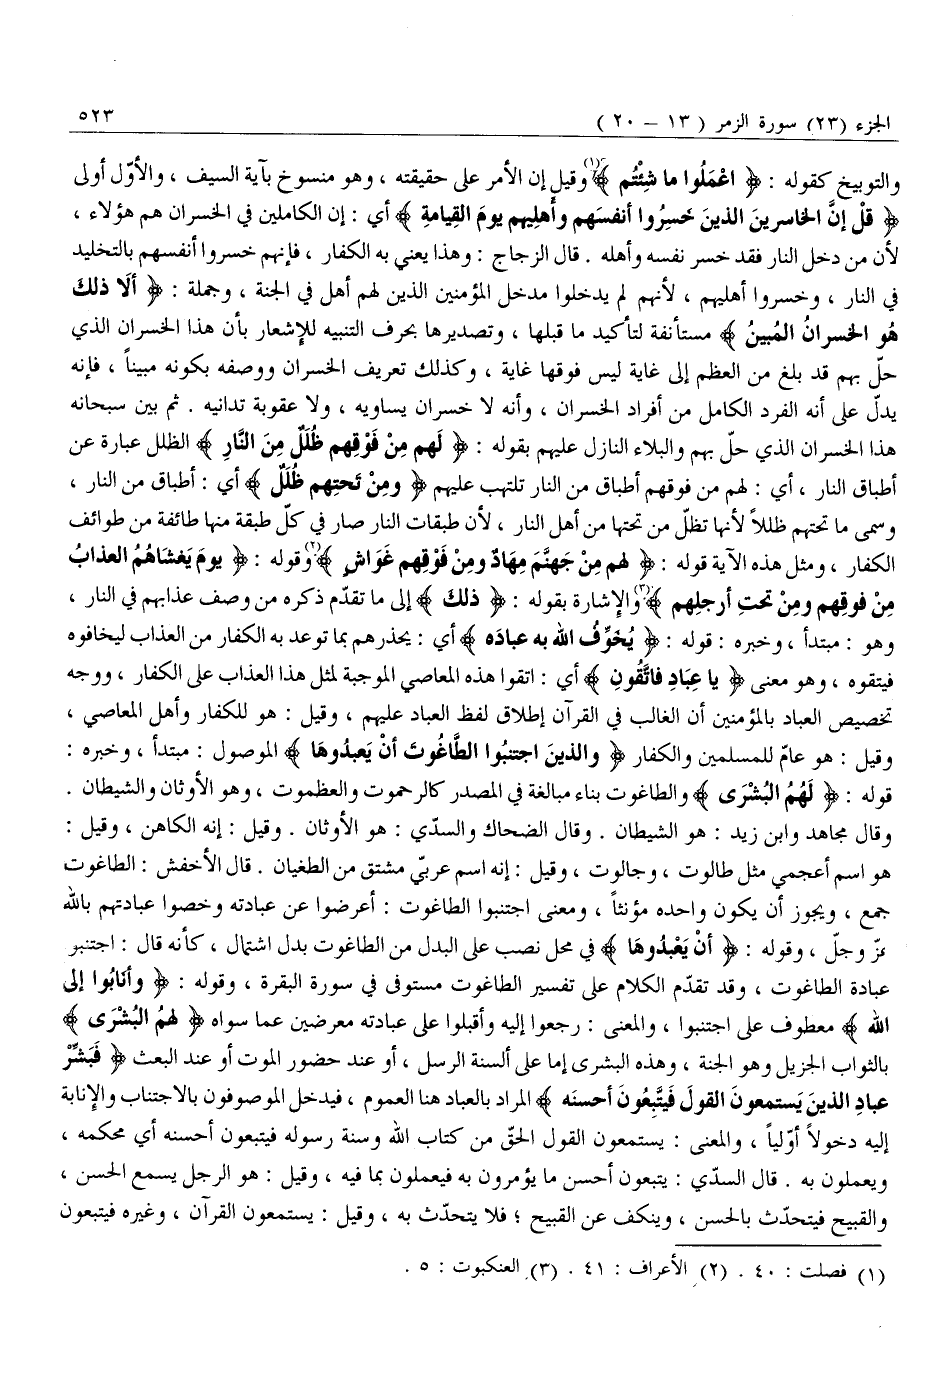 الجزء (٢٣) سورة الزمر ( ١٣ – ٢٠ ) ٥٢٣
والتوبيخ كقوله : ﴿ اعْمَلُوا ما شِئْتُم ﴾(١) وقيل إن الأمر على حقيقته ، وهو منسوخ بآية السيف ، والأوّل أولى
﴿ قلْ إنَّ الخاسرينَ الذينَ خَسِرُوا أنفسَهم وأهلِيهم يومَ القِيامةِ ﴾ أي : إن الكاملين في الخسران هم هؤلاء ،
لأن من دخل النار فقد خسر نفسه وأهله . قال الزجاج : وهذا يعني به الكفار ، فإنهم خسروا أنفسهم بالتخليد
في النار ، وخسروا أهليهم ، لأنهم لم يدخلوا مدخل المؤمنين الذين لهم أهل في الجنة ، وجملة : ﴿ ألَا ذلكَ
هُو الخسرانُ المُبينُ ﴾ مستأنفة لتأكيد ما قبلها ، وتصديرها بحرف التنبيه للإشعار بأن هذا الخسران الذي
حلّ بهم قد بلغ من العظم إلى غاية ليس فوقها غاية ، وكذلك تعريف الخسران ووصفه بكونه مبيناً ، فإنه
يدلّ على أنه الفرد الكامل من أفراد الخسران ، وأنه لا خسران يساويه ، ولا عقوبة تدانيه . ثم بين سبحانه
هذا الخسران الذي حلّ بهم والبلاء النازل عليهم بقوله : ﴿ لَهم مِنْ فَوْقِهم ظُلَلٌ مِنَ النَّارِ ﴾ الظلل عبارة عن
أطباق النار ، أي : لهم من فوقهم أطباق من النار تلتهب عليهم ﴿ ومِنْ تَحتِهم ظُلَلٌ ﴾ أي : أطباق من النار ،
وسمى ما تحتهم ظللاً لأنها تظلّ من تحتها من أهل النار ، لأن طبقات النار صار في كلّ طبقة منها طائفة من طوائف
الكفار ، ومثل هذه الآية قوله : ﴿ لهم مِنْ جَهنَّمَ مِهادٌ ومِنْ فَوْقِهم غَوَاشٍ ﴾(٢) وقوله : ﴿ يومَ يَغشَاهُمُ العذابُ
مِنْ فوقِهم ومِنْ تحتِ أرجلِهم ﴾(٣) والإشارة بقوله : ﴿ ذلكَ ﴾ إلى ما تقدّم ذكره من وصف عذابهم في النار ،
وهو : مبتدأ ، وخبره : قوله : ﴿ يُخَوِّفُ الله به عبادَه ﴾ أي : يحذرهم بما توعد به الكفار من العذاب ليخافوه
فيتقوه ، وهو معنى ﴿ يا عِبَادِ فاتَّقُونِ ﴾ أي : اتقوا هذه المعاصي الموجبة لمثل هذا العذاب على الكفار ، ووجه
تخصيص العباد بالمؤمنين أن الغالب في القرآن إطلاق لفظ العباد عليهم ، وقيل : هو للكفار وأهل المعاصي ،
وقيل : هو عامّ للمسلمين والكفار ﴿ والذينَ اجتنبُوا الطَّاغُوتَ أنْ يَعبدُوهَا ﴾ الموصول : مبتدأ ، وخبره :
قوله : ﴿ لَهُمُ البُشْرَى ﴾ والطاغوت بناء مبالغة في المصدر كالرحموت والعظموت ، وهو الأوثان والشيطان .
وقال مجاهد وابن زيد : هو الشيطان . وقال الضحاك والسدّي : هو الأوثان . وقيل : إنه الكاهن ، وقيل :
هو اسم أعجمي مثل طالوت ، وجالوت ، وقيل : إنه اسم عربيّ مشتق من الطغيان . قال الأخفش : الطاغوت
جمع ، ويجوز أن يكون واحده مؤنثاً ، ومعنى اجتنبوا الطاغوت : أعرضوا عن عبادته وخصوا عبادتهم بالله
عزّ وجلّ ، وقوله : ﴿ أنْ يَعْبدُوهَا ﴾ في محل نصب على البدل من الطاغوت بدل اشتمال ، كأنه قال : اجتنبو
عبادة الطاغوت ، وقد تقدّم الكلام على تفسير الطاغوت مستوفى في سورة البقرة ، وقوله : ﴿ وأنَابُوا إلى
الله ﴾ معطوف على اجتنبوا ، والمعنى : رجعوا إليه وأقبلوا على عبادته معرضين عما سواه ﴿ لهمُ البُشْرَى ﴾
بالثواب الجزيل وهو الجنة ، وهذه البشرى إما على ألسنة الرسل ، أو عند حضور الموت أو عند البعث ﴿ فَبَشِّرْ
عبادِ الذينَ يَستمعونَ القولَ فيَتَّبِعُونَ أحسنَه ﴾ المراد بالعباد هنا العموم ، فيدخل الموصوفون بالاجتناب والإنابة
إليه دخولاً أوّلياً ، والمعنى : يستمعون القول الحقّ من كتاب الله وسنة رسوله فيتبعون أحسنه أي محكمه ،
ويعملون به . قال السدّي : يتبعون أحسن ما يؤمرون به فيعملون بما فيه ، وقيل : هو الرجل يسمع الحسن ،
والقبيح فيتحدّث بالحسن ، وينكف عن القبيح ؛ فلا يتحدّث به ، وقيل : يستمعون القرآن ، وغيره فيتبعون
(١) فصلت : ٤٠ . (٢) الأعراف : ٤١ . (٣) العنكبوت : ٥ .